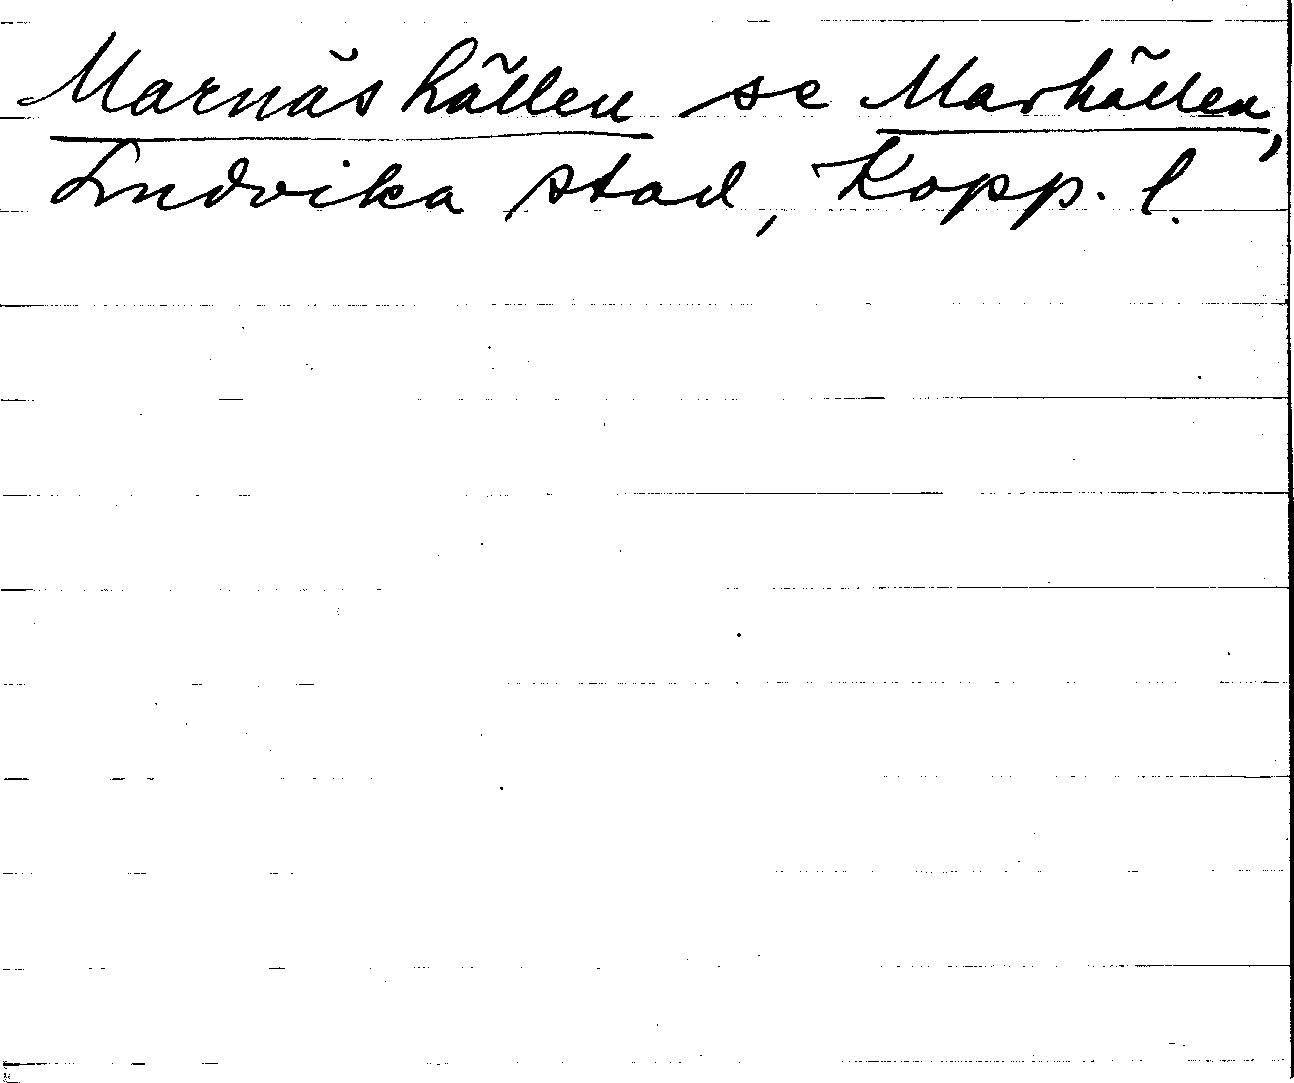 Marnäshällen se Marhällen,
Ludvika stad, Kopp. l.